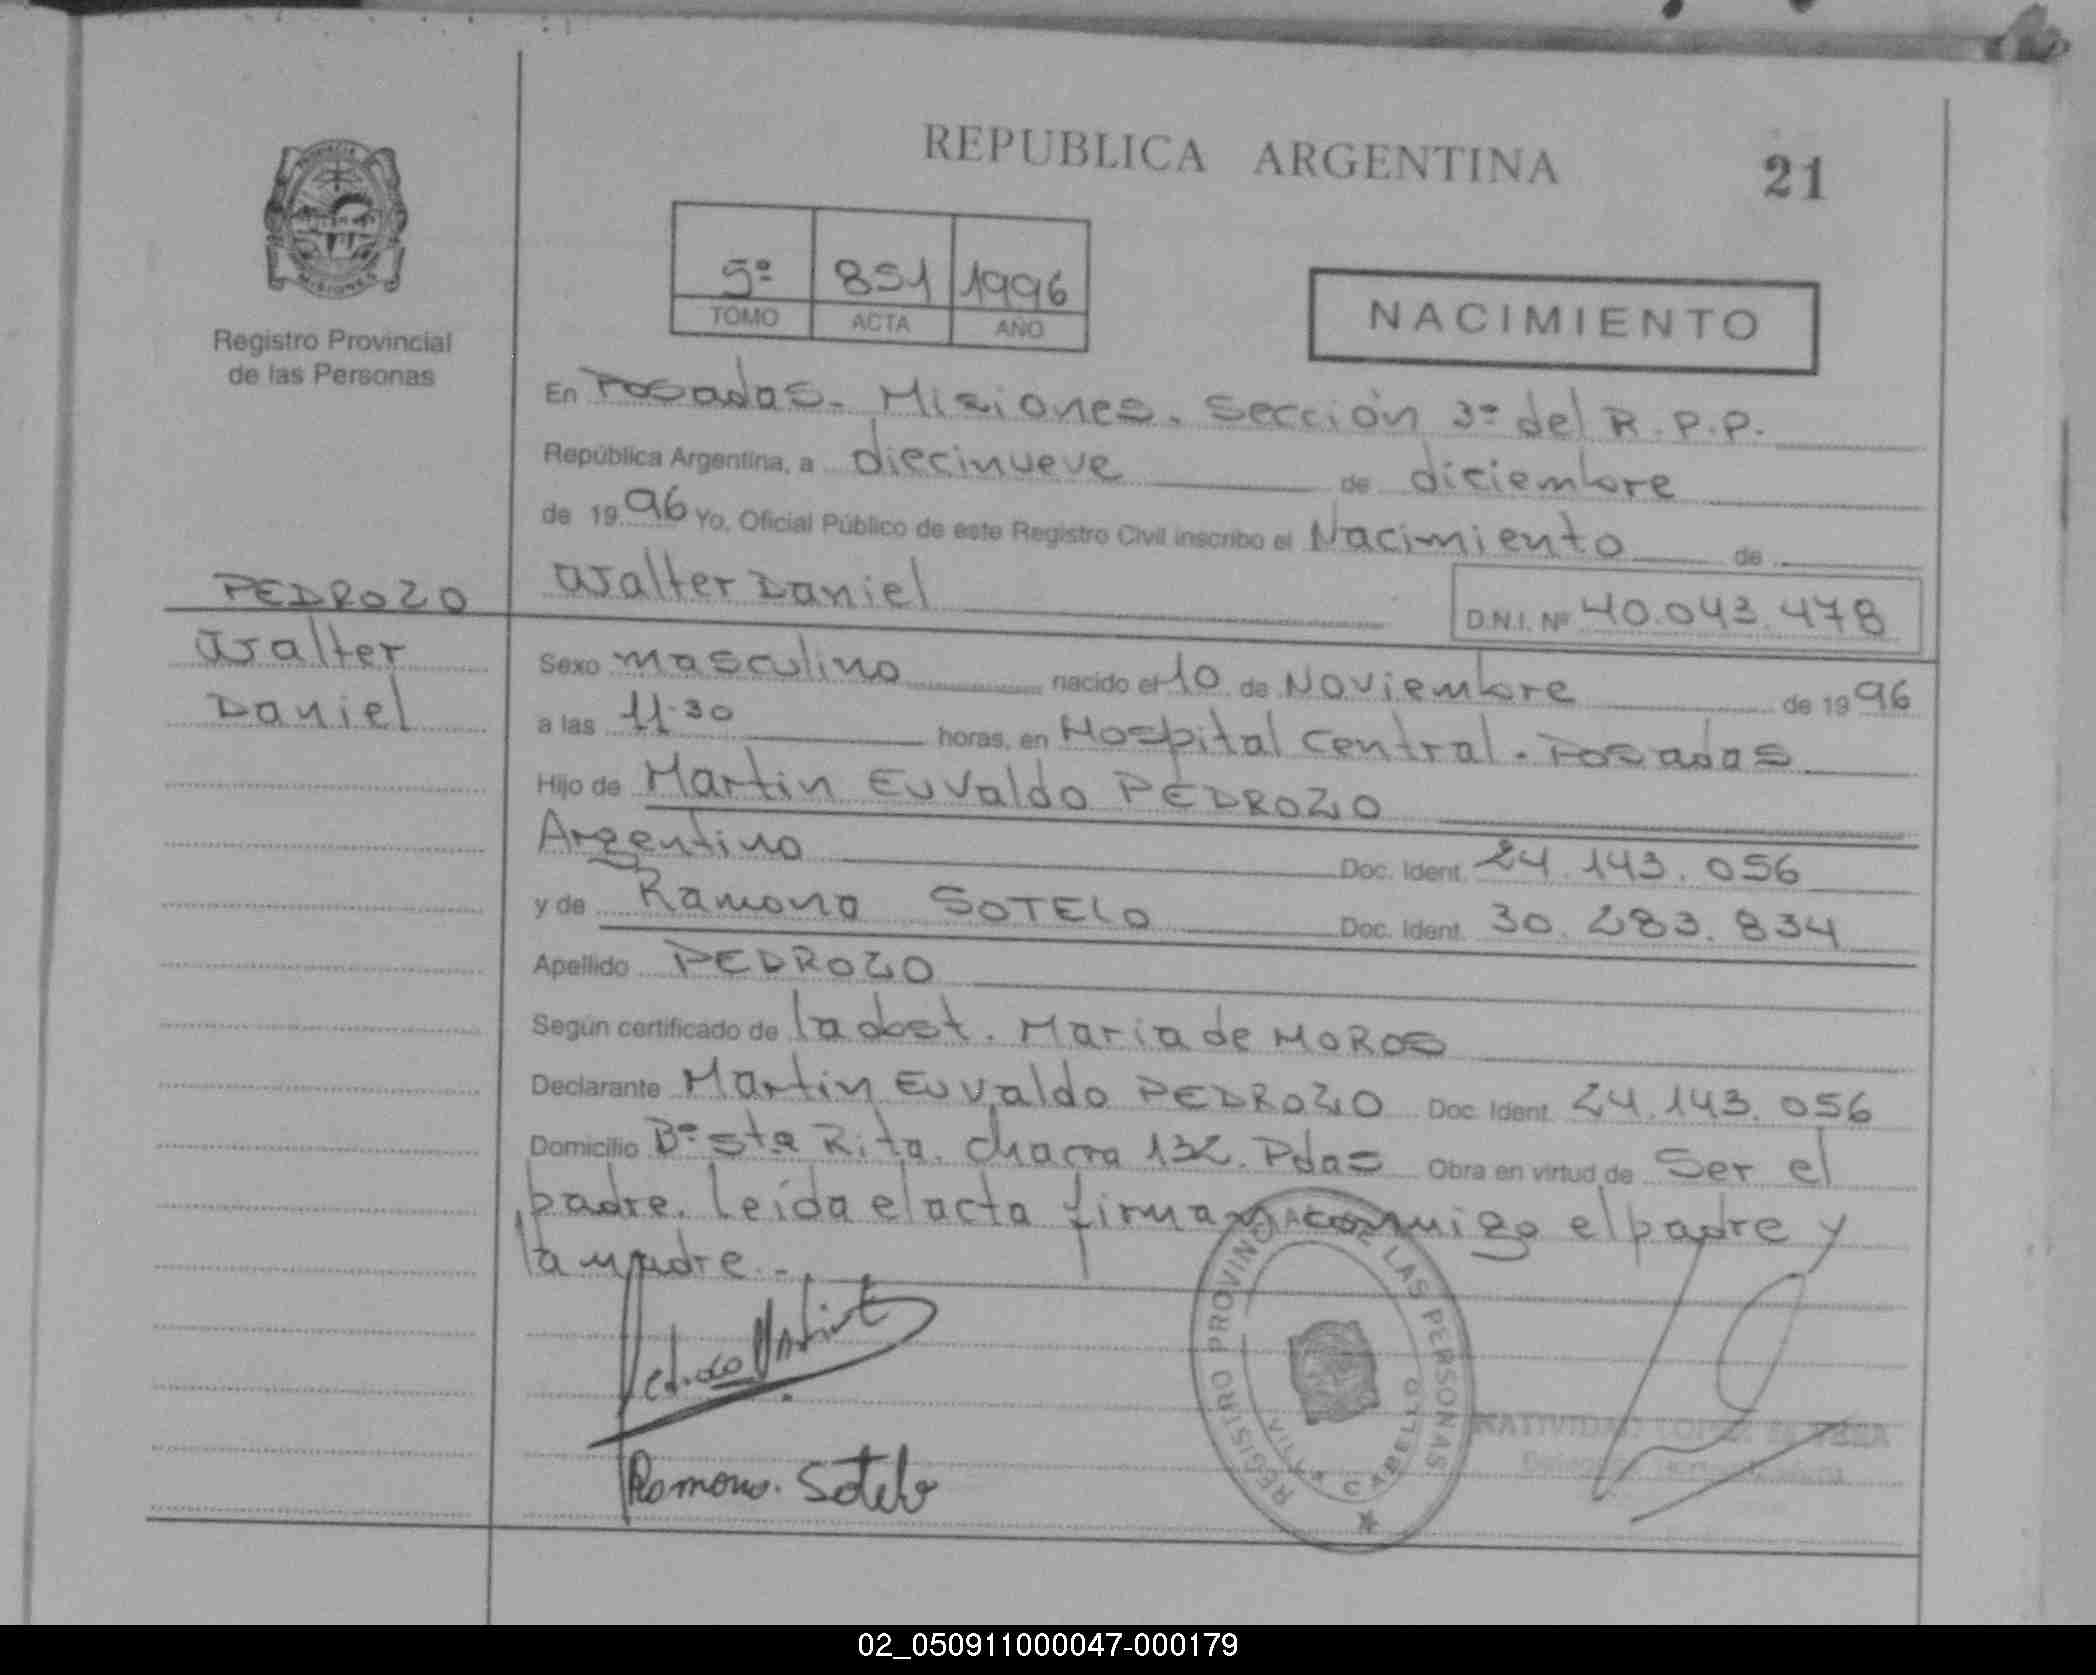 REPUBLICA ARGENTINA
21
PROVINCIA
MISIONES
Registro Provincial
de las Personas
5º 851 1996
TOMO ACTA AÑO
NACIMIENTO
En Posadas - Misiones. Sección 3º del R.P.P.
República Argentina, a diecinueve de diciembre
de 1996 Yo, Oficial Público de este Registro Civil inscribo el Nacimiento de
Walter Daniel D.N.I. Nº 40.043.478
PEDROZO
Walter
Daniel
Sexo masculino nacido el 10 de Noviembre de 1996
a las 11.30 horas, en Hospital Central. Posadas
Hijo de Martin Euvaldo PEDROZO
Argentino Doc. Ident. 24.143.056
y de Ramona SOTELO Doc. Ident. 30.283.834
Apellido PEDROZO
Según certificado de la obst. Maria de MOROS
Declarante Martin Euvaldo PEDROZO Doc. Ident. 24.143.056
Domicilio Bº Sta Rita. Chacra 132. Pdas Obra en virtud de Ser el
padre. Leída el acta firman conmigo el padre y
la madre.-
Pedrozo Martin
Ramona Sotelo
REGISTRO PROVINCIAL DE LAS PERSONAS
VILLA CABELLO
NATIVIDAD LOPEZ
02_050911000047-000179